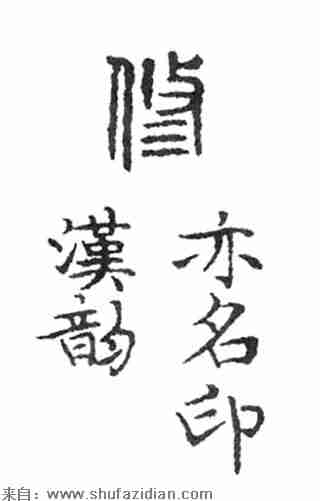 修
亦名印
漢韵
来自:www.shufazidian.com